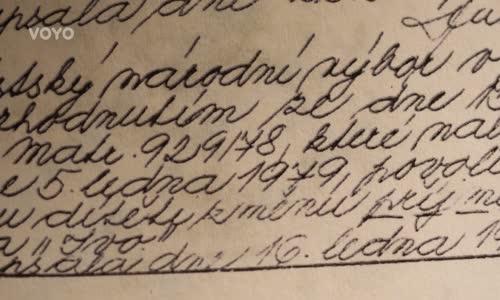 VOYO
psala dne
tský národní výbor v
rhodnutím ze dne
mate. 929/78, které na
e 5. ledna 1979, povol
u dítěte k jménu příj
a „Ivo"
psala dne 16. ledna 1